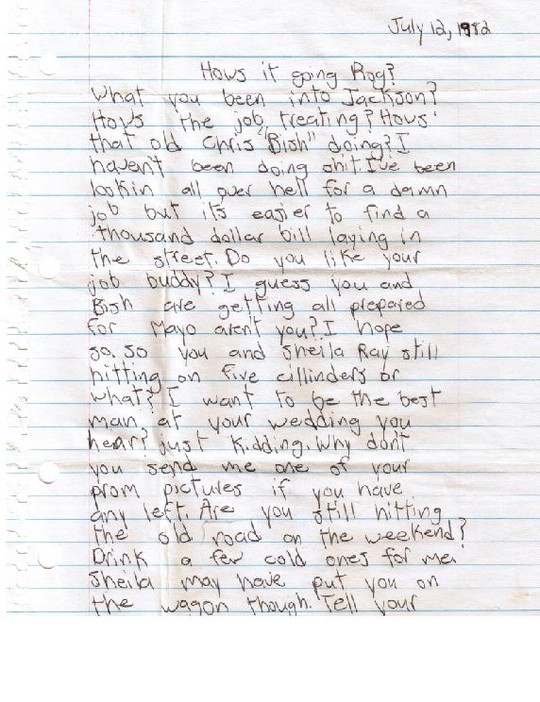 July 12, 1982
Hows it going Rog?
What you been into Jackson?
Hows the job treating? Hows
that old Chris "Bish" doing? I
haven't been doing shit. I've been
lookin all over hell for a damn
job but its easier to find a
thousand dollar bill laying in
the street. Do you like your
job buddy? I guess you and
Bish are getting all prepared
for Mayo arent you? I hope
so. So you and Sheila Ray still
hitting on five cillinders or
what? I want to be the best
man at your wedding you
hear? Just kidding. Why don't
you send me one of your
prom pictures if you have
any left. Are you still hitting
the old road on the weekend?
Drink a few cold ones for me.
Sheila may have put you on
the wagon though. Tell your